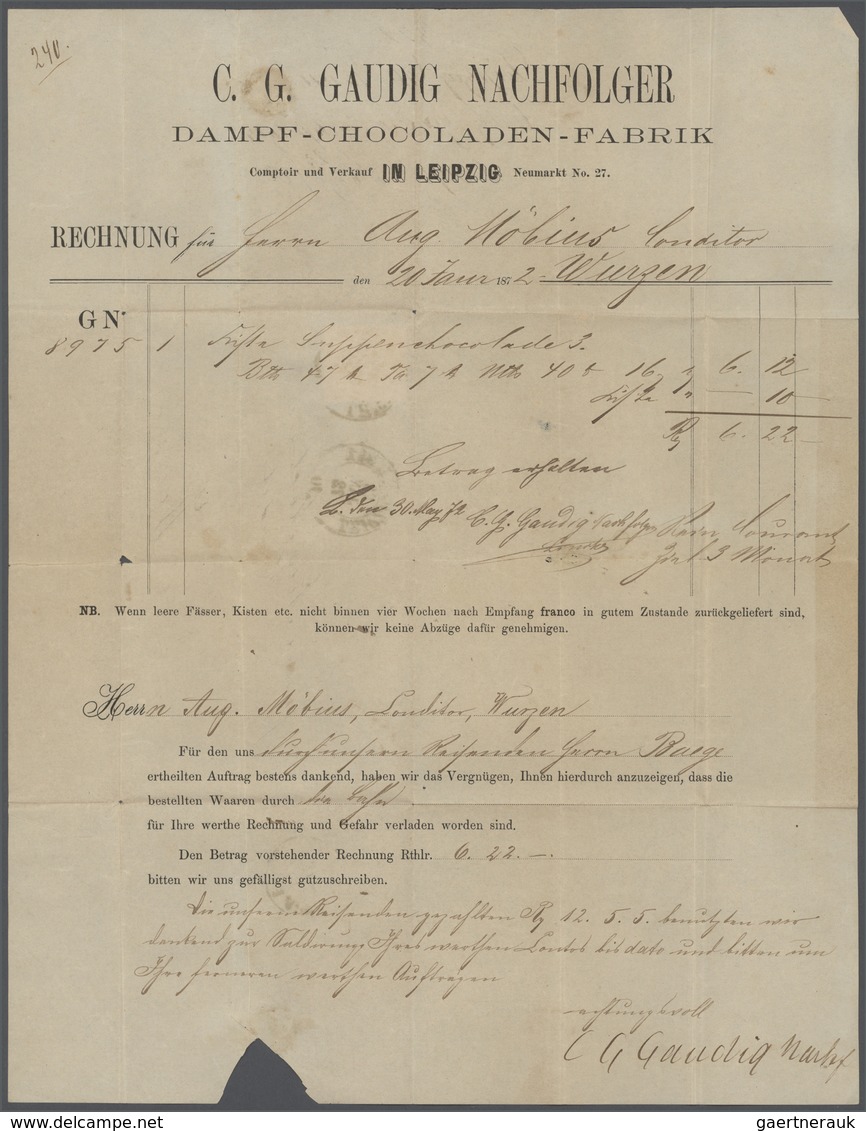 240.
C. G. GAUDIG NACHFOLGER
DAMPF-CHOCOLADEN-FABRIK
Comptoir und Verkauf IN LEIPZIG Neumarkt No. 27.
RECHNUNG für Herrn Aug. Möbius Conditor
den 20 Janr 1872 Wurzen
G N°
8975 1 Kiste Suppenchocolade 3.
Btto 47 ℔ Ta 7 ℔ Ntto 40 ℔ 16 " 6. 12
Kiste " — 10 —
Rf 6. 22 —
Betrag erhalten
L. den 30. May 72 C. G. Gaudig Nachfolger Rein Courant
Ziel 3 Monat
NB. Wenn leere Fässer, Kisten etc. nicht binnen vier Wochen nach Empfang franco in gutem Zustande zurückgeliefert sind,
können wir keine Abzüge dafür genehmigen.
Herrn Aug. Möbius, Conditor, Wurzen
Für den uns durch unsern Reisenden Herrn Baege
ertheilten Auftrag bestens dankend, haben wir das Vergnügen, Ihnen hierdurch anzuzeigen, dass die
bestellten Waaren durch die Bahn
für Ihre werthe Rechnung und Gefahr verladen worden sind.
Den Betrag vorstehender Rechnung Rthlr. 6. 22. —.
bitten wir uns gefälligst gutzuschreiben.
Die unserm Reisenden gezahlten Rf 12. 5. 5. benutzten wir
dankend zur Saldirung Ihres werthen Contos bis dato und bitten um
Ihre ferneren werthen Aufträgen
achtungsvoll
C G Gaudig Nachf
gaertnerauk@delcampe.net